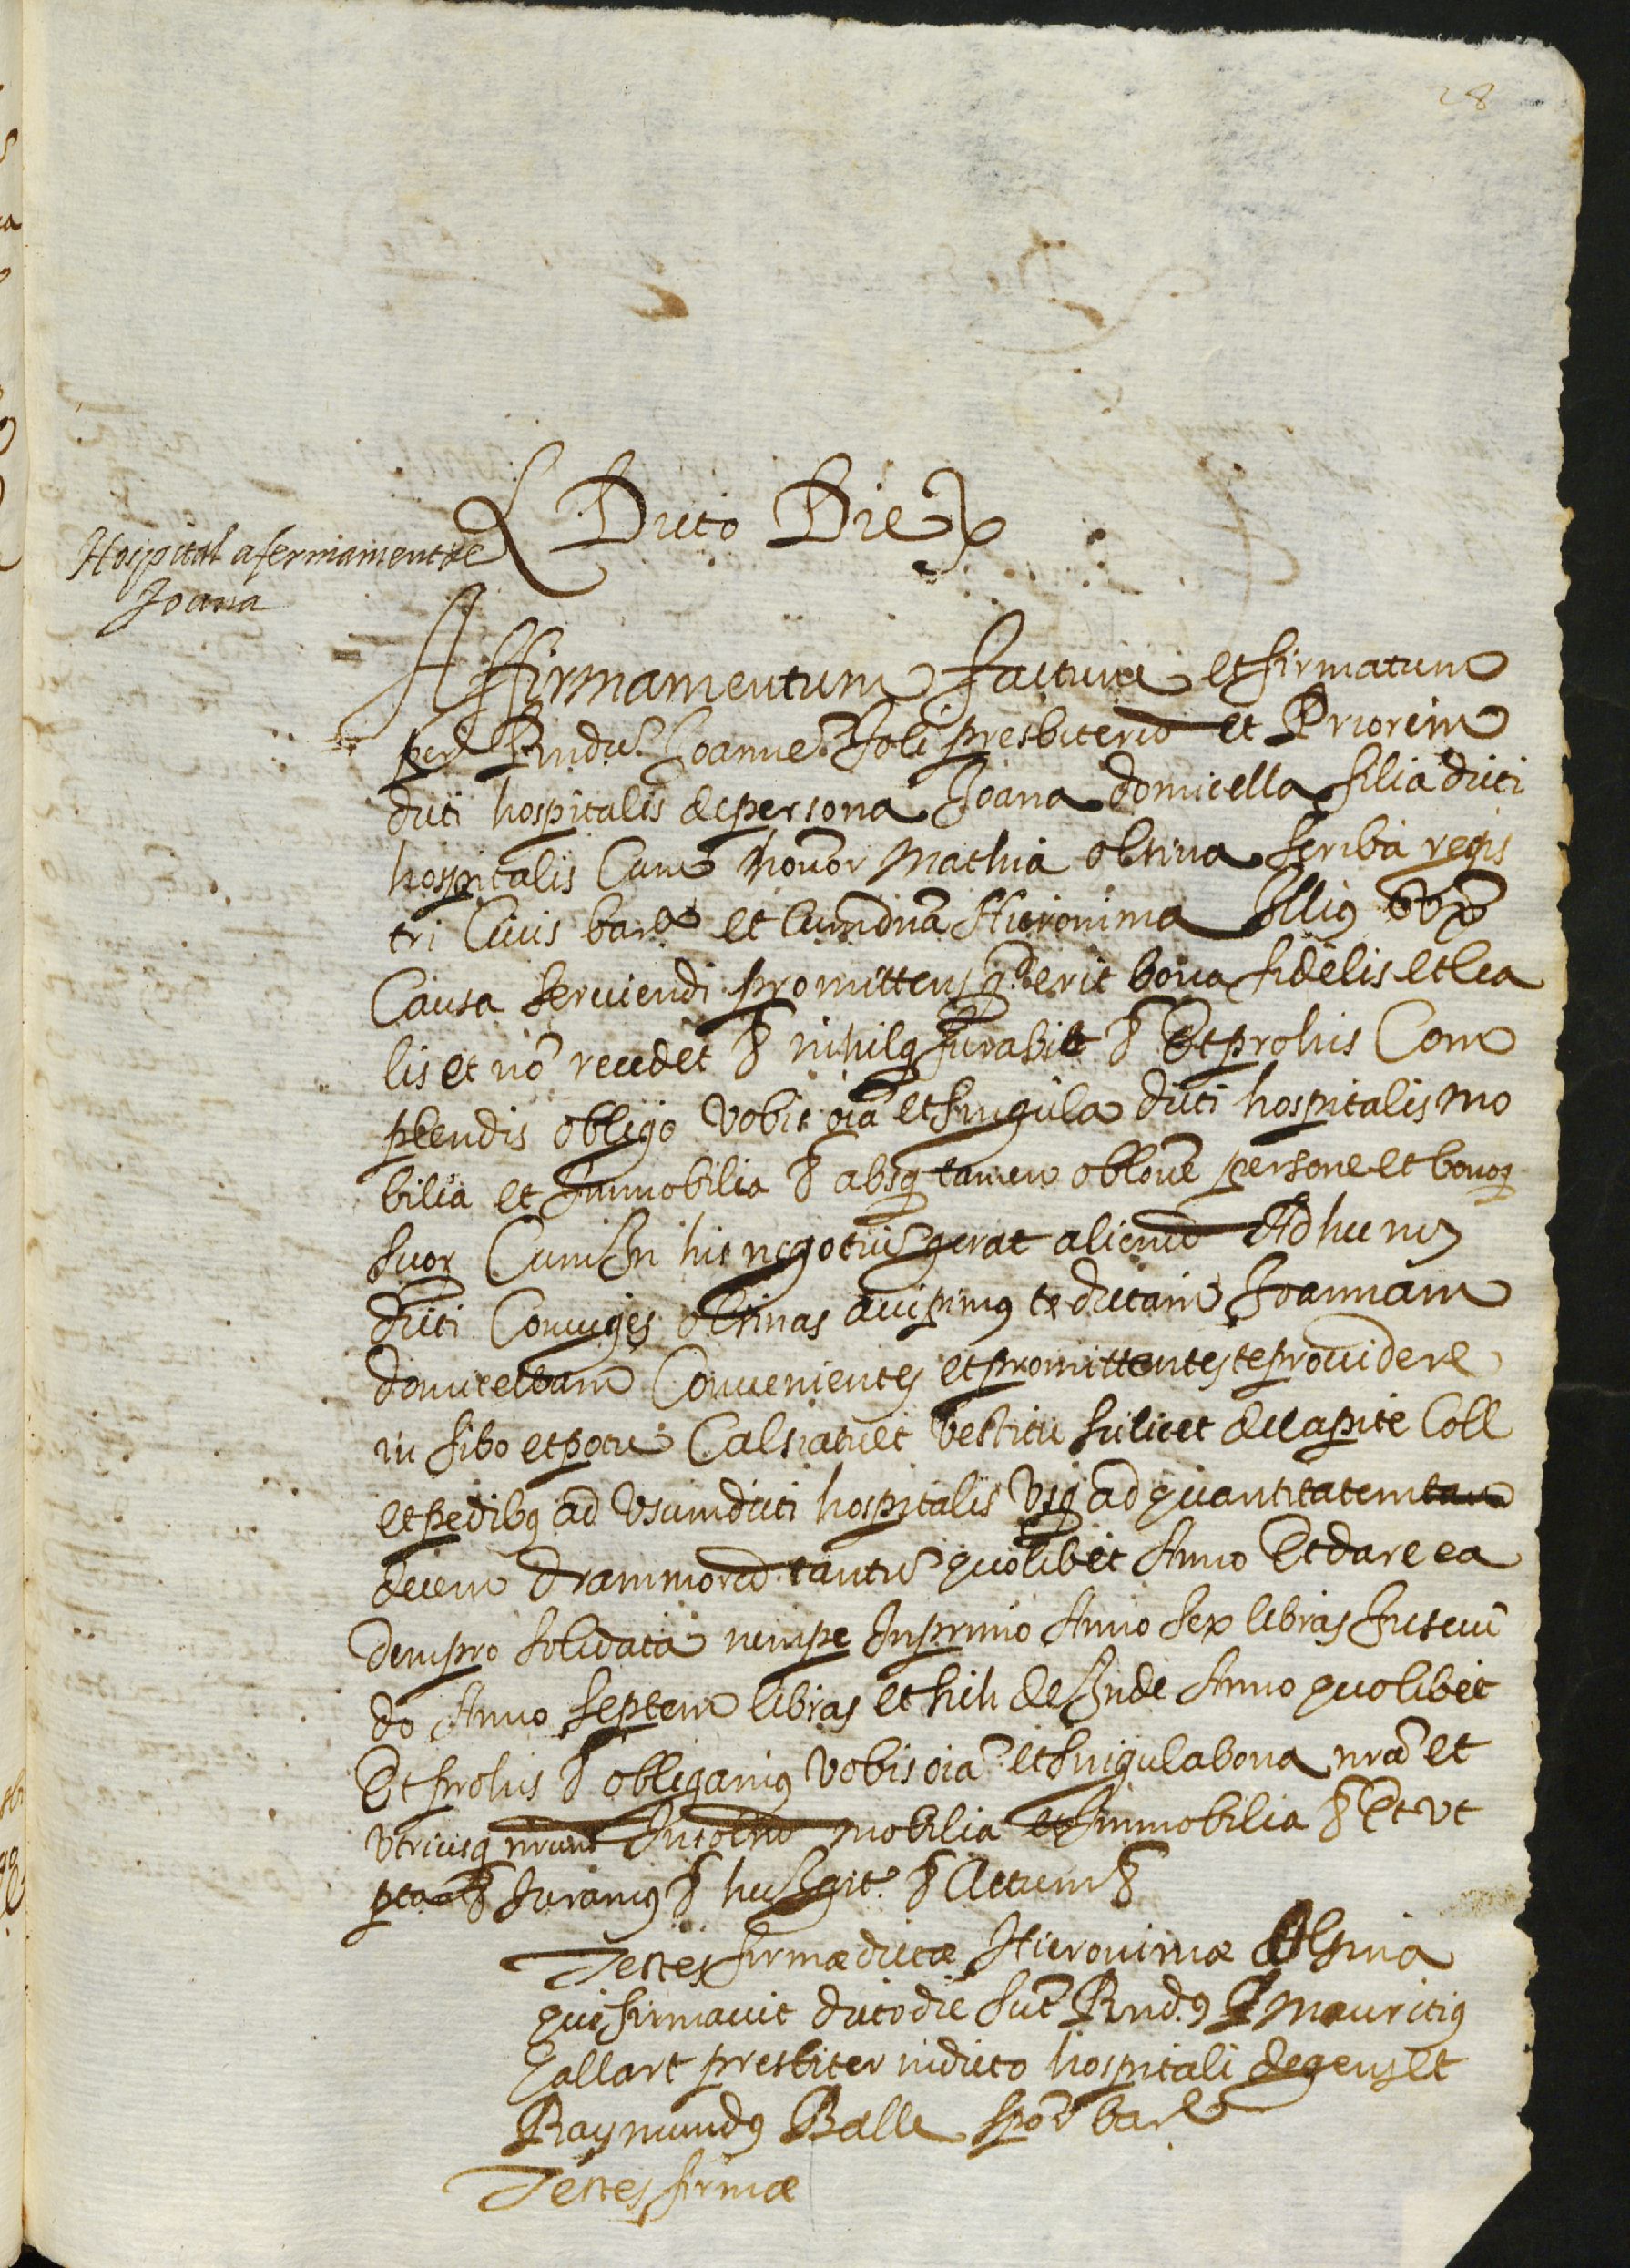 28
Dicto Die
Hospital afermament de
Joana
Affirmamentum factum et firmatum
per Rndu. Joanne Soli presbiteru et Priorem
dicti hospitalis de persona Joana domicella filia dicti
hospitalis Cum honor Mathia olsina scriba regis
tri Civis barc et Cum dna Hieronima Illius uxe
Causa serviendi promittens q. erit bona fidelis et lea
lis et no recedet & nihilq furabit & Et pro his Com
plendis obligo vobis oia et singula dicti hospitalis mo
bilia et Immobilia & absq tamen oblone persone et bonor
suor Cum In hic negotiu gerat alienu Ad hec nos
dicti Coniuges olsinas accipimus te dictam Joannam
domicellam Convenientes et promittentes te providere
in sibo et potu Calsiatu et vestitu silicet de capite Coll
et pedibus ad usum dicti hospitalis usq ad quantitatem
decem drammoru tantu quolibet Anno Et dare ea
dem pro solidata nempe In primo Anno sex libras In secun
do Anno septem libras et sich de Inde Anno quolibet
Et pro his & obligamus vobis oia et singula bona nra et
utriusq nrum Insolru mobilia et Immobilia & Et ut
pta & Juramus & hec Igit. & Actum &
Testes firmæ dictæ Hieronimæ Olsina
qui firmavit dicto die sut Rndus Mauritius
Gallart presbiter in dicto hospitali degens et
Raymundus Balle spor barc
Testes firmæ